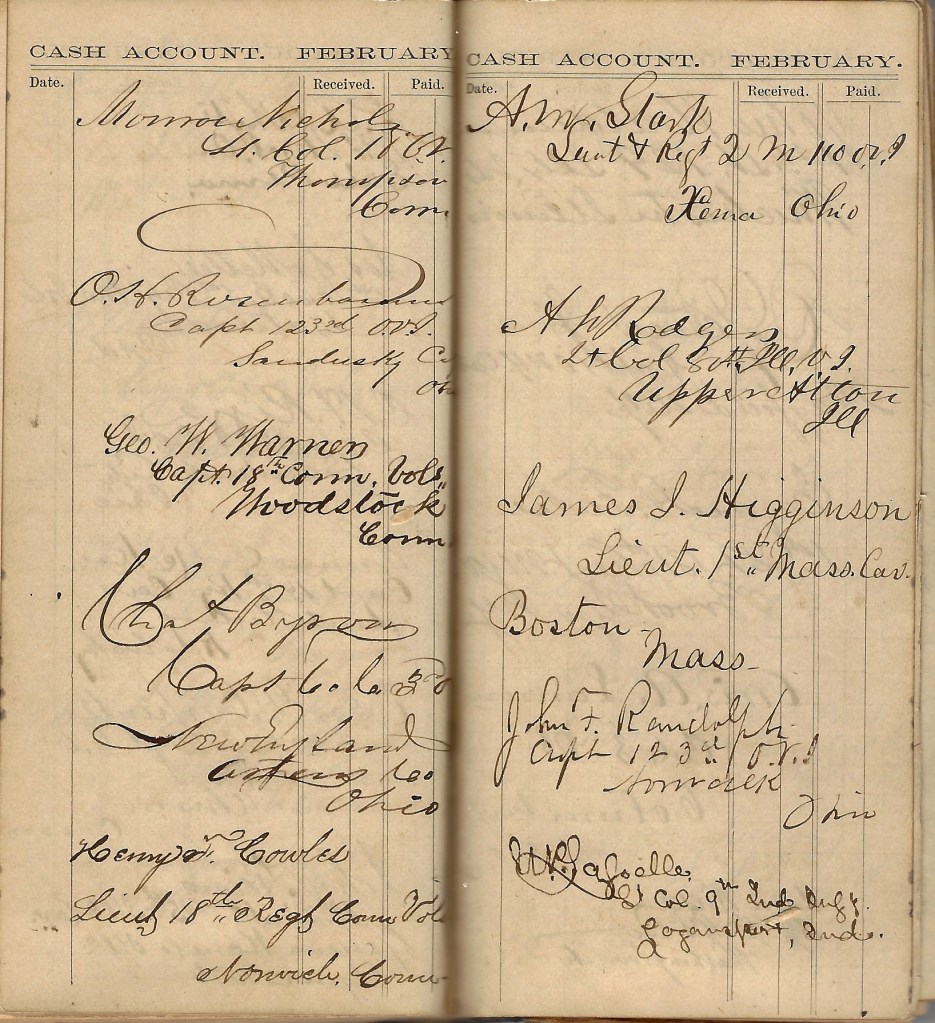 CASH ACCOUNT. FEBRUARY
Date. Received. Paid.
Monroe Nichols
Lt. Col. 18" C.V.
Thompson
Conn
O. H. Rosenbaum
Capt 123rd O.V.I.
Sandusky C
Oh
Geo. W. Warner
Capt. 18th Conn. Vols.
Woodstock
Conn
Chas A Byron
Capt Co. C 3
New England
Athens Co
Ohio
Henry F. Cowles
Lieut 18th Regt Conn Vol
Norwich, Conn
CASH ACCOUNT. FEBRUARY.
Date. Received. Paid.
A. M. Stark
Lieut & Regt 2 M 110 O.V.I
Xenia Ohio
A W Rodgers
Lt Col 80th Ill. V. I.
Upper Alton
Ill
James J. Higginson
Lieut. 1st Mass. Cav.
Boston
Mass
John F. Randolph
Capt 123d O.V.I
Norwalk
Ohio
Lasselle
Lt Col. 9th Ind Infy.
Logansport, Ind.